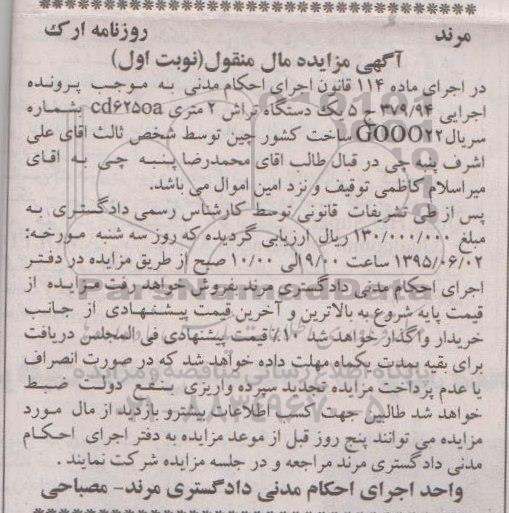 مرند روزنامه ارک
آگهی مزایده مال منقول(نوبت اول)
در اجرای ماده ۱۱۴ قانون اجرای احکام مدنی به موجب پرونده
اجرایی ۳۷۹/۹۴ ج ۵ یک دستگاه تراش ۲ متری cd۶۲۵oa بشماره
سریال GOOO۲۲ ساخت کشور چین توسط شخص ثالث اقای علی
اشرف پنبه چی در قبال طالب اقای محمدرضا پنبه چی به اقای
میراسلام کاظمی توقیف و نزد امین اموال می باشد.
پس از طی تشریفات قانونی توسط کارشناس رسمی دادگستری به
مبلغ ۱۳۰/۰۰۰/۰۰۰ ریال ارزیابی گردیده که روز سه شنبه مورخه:
۱۳۹۵/۰۶/۰۲ ساعت ۹/۰۰ الی ۱۰/۰۰ صبح از طریق مزایده در دفتر
اجرای احکام مدنی دادگستری مرند بفروش خواهد رفت مزایده از
قیمت پایه شروع به بالاترین و آخرین قیمت پیشنهادی از جانب
خریدار واگذار خواهد شد ۱۰٪ قیمت پیشنهادی فی المجلس دریافت
برای بقیه بمدت یکماه مهلت داده خواهد شد که در صورت انصراف
یا عدم پرداخت مزایده تجدید سپرده واریزی بنفع دولت ضبط
خواهد شد طالبین جهت کسب اطلاعات بیشترو بازدید از مال مورد
مزایده می توانند پنج روز قبل از موعد مزایده به دفتر اجرای احکام
مدنی دادگستری مرند مراجعه و در جلسه مزایده شرکت نمایند.
واحد اجرای احکام مدنی دادگستری مرند- مصباحی
ParsNamadData
پایگاه اطلاع رسانی مناقصه و مزایده